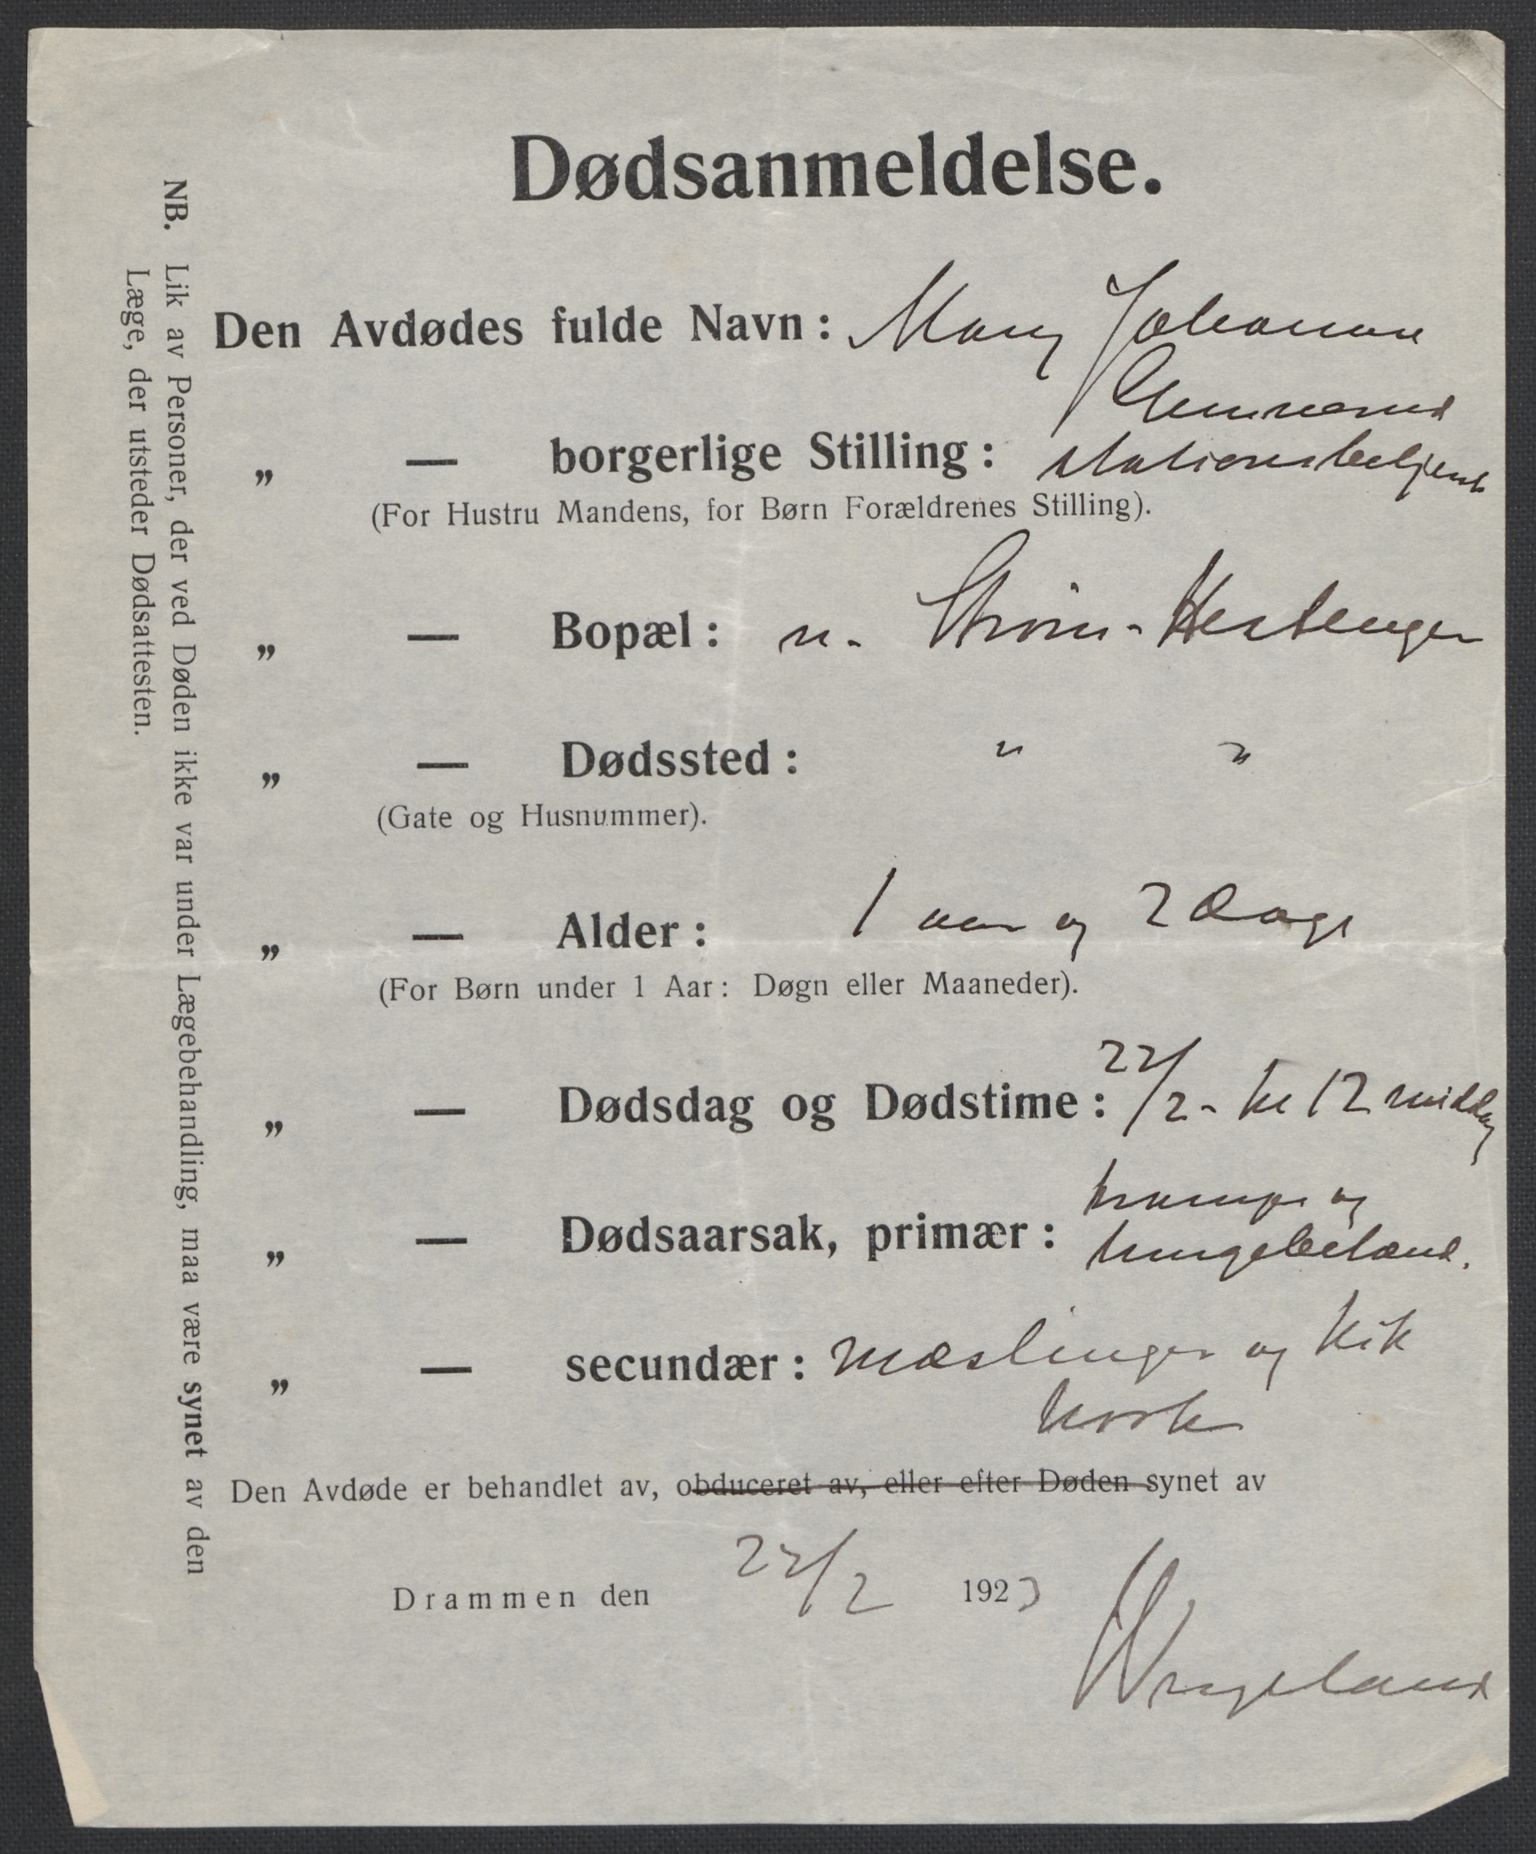 Dødsanmeldelse.
NB. Lik av Personer, der ved Døden ikke var under Lægebehandling, maa være synet av den
Læge, der utsteder Dødsattesten.
Den Avdødes fulde Navn: Mary Johanne
„ — borgerlige Stilling: Stationsbetjent
(For Hustru Mandens, for Børn Forældrenes Stilling).
„ — Bopæl: n. Strøm-Hestengen
„ — Dødssted: " "
(Gate og Husnummer).
„ — Alder: 1 aar og 2 Dage
(For Børn under 1 Aar: Døgn eller Maaneder).
„ — Dødsdag og Dødstime: 22/2 - kl 12 middag
„ — Dødsaarsak, primær: krampe og
lungebetænd.
„ — secundær: mæslinger og Kik
hoste
Den Avdøde er behandlet av, obduceret av, eller efter Døden synet av
Drammen den 22/2 1923
Wergeland